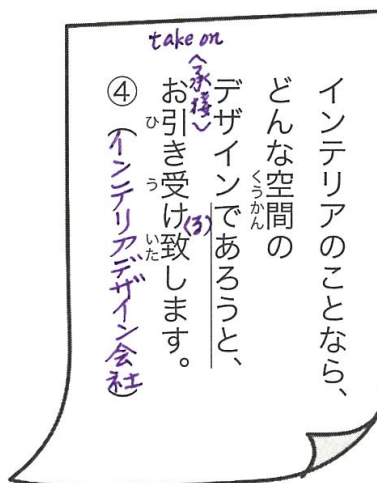 インテリアのことなら、
どんな空間の
くうかん
デザインであろうと、
お引き受け致します。
ひ う いた
take on
<承接>
<る>
④（インテリアデザイン会社）